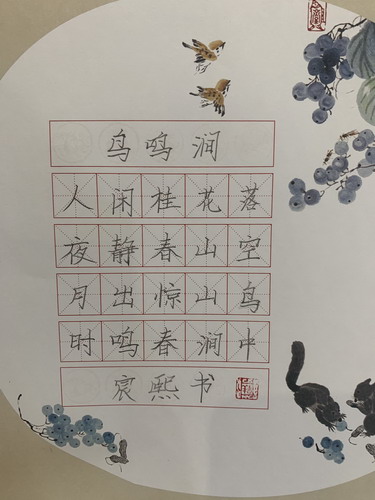 鸟鸣涧
人闲桂花落
夜静春山空
月出惊山鸟
时鸣春涧中
宸熙书